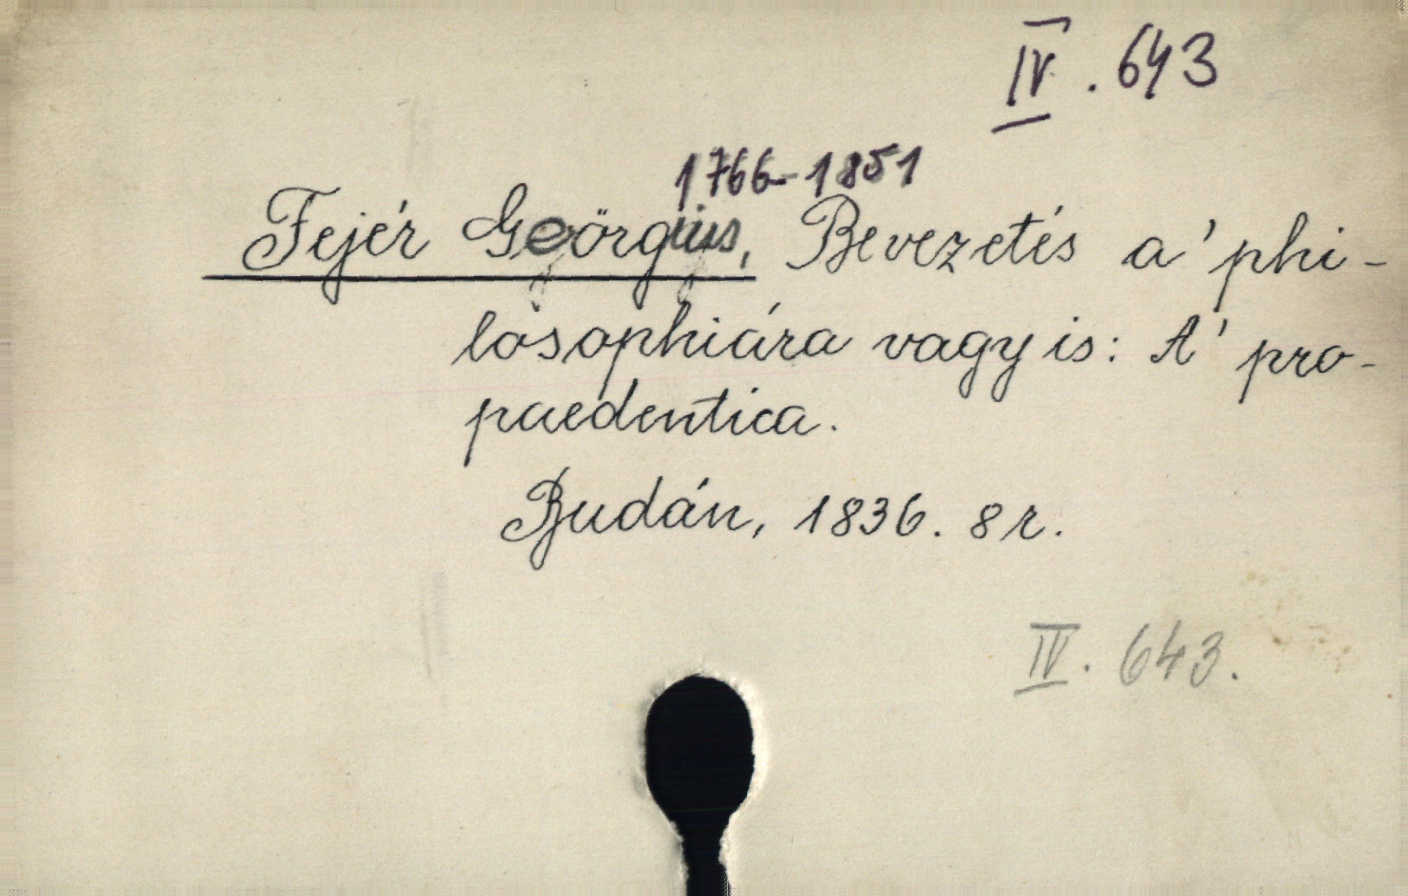 IV. 643
1766-1851
Fejér Geörgius, Bevezetés a' phi-
losophiára vagy is: A' pro-
paedentica.
Budán, 1836. 8r.
IV. 643.